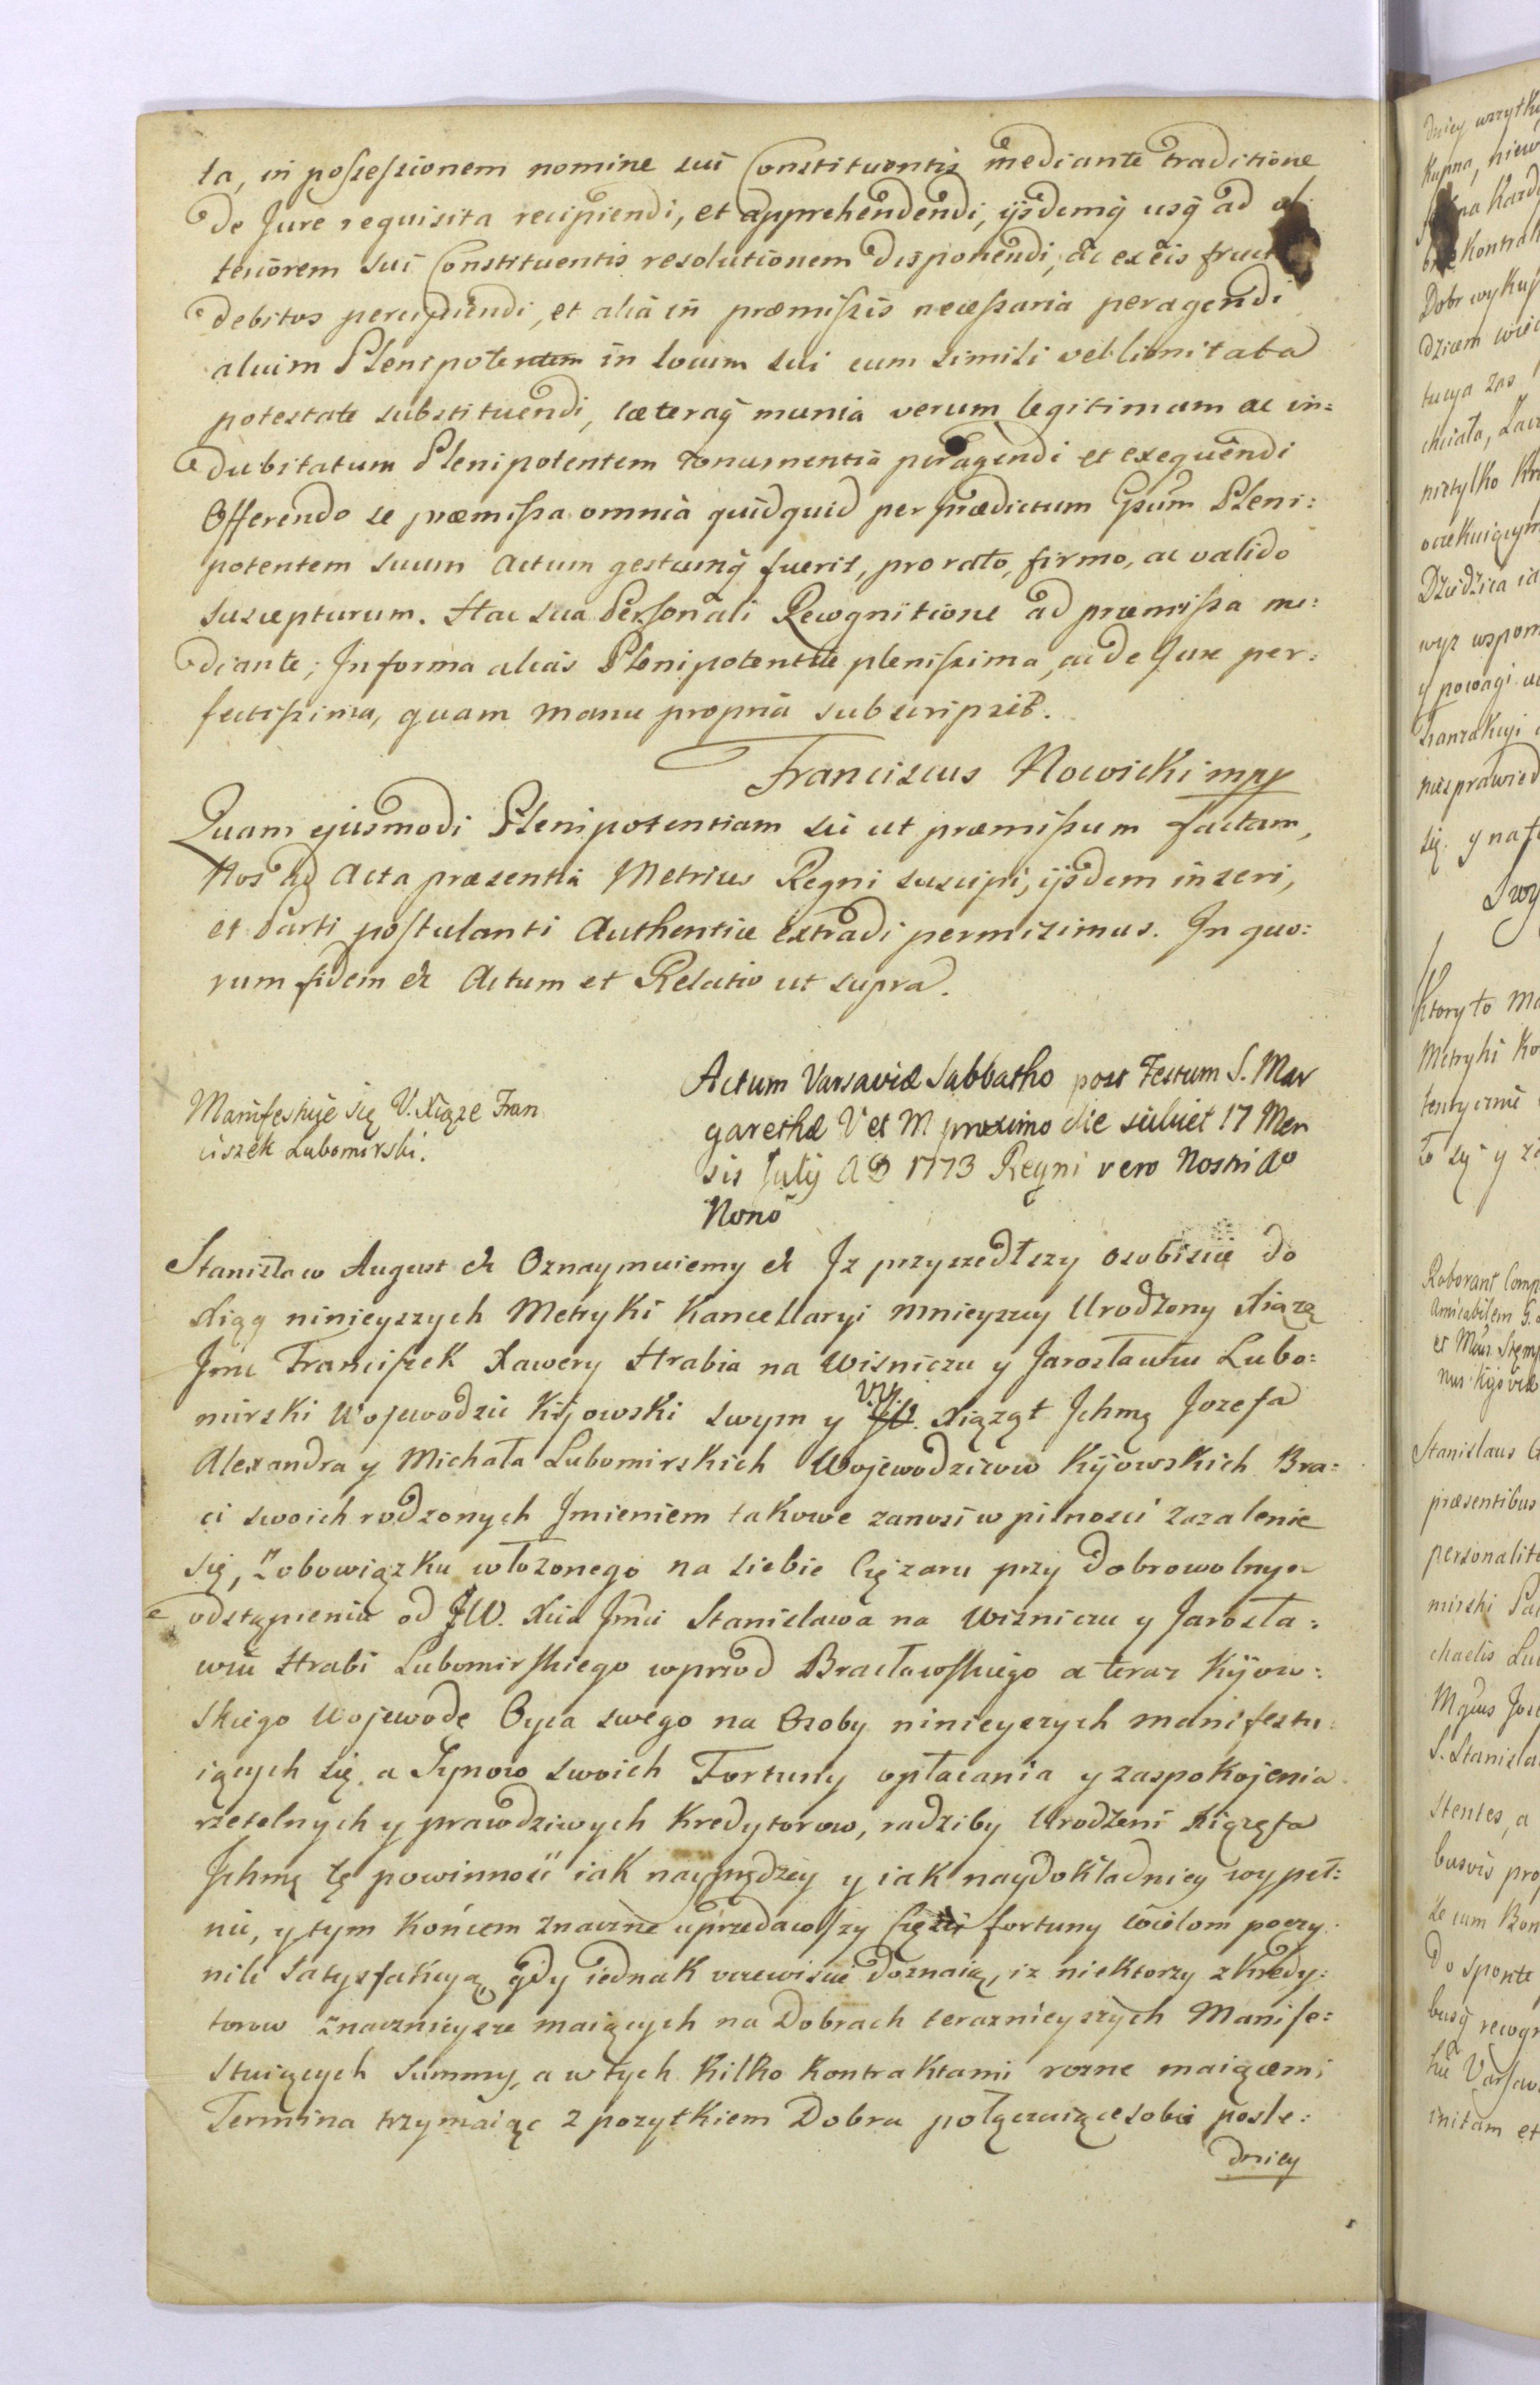 ta, in possessionem nomine sui Constituentis mediante traditione
de Jure requisita recipiendi, et apprehendendi, ijsdemq̃ usq̃ ad ul
teriorem sui Constituentis resolutionem disponendi, ac ex eis fruct
debitos percipiendi, et alia in præmissis necessaria peragendi
alium Plenipotentem in locum sui cum simili vel limitata
potestate substituendi, cæteraq̃ munia verum legitimum ac in=
dubitatum Plenipotentem peragendi et exequendi
Offerendo se præmissa omnia quidquid per prædictum Gsum Pleni:
potentem suum actum gestumq̃ fuerit, pro rato, firmo, ac valido
suscepturum. Hac sua Personali Recognitione ad præmissa me:
diante; In forma alias Plenipotentiæ plenissima, ac de Jure per:
fectissima, quam manu propria subscripsit.
Franciscus Nowicki mpp
Quam ejusmodi Plenipotentiam sic ut præmissum factam,
Nos ad Acta præsentia Metrices Regni suscipi, ijsdem inseri,
et Parti postulanti Authentice extradi permisimus. In quo:
rum fidem &c Actum et Relatio ut supra.
Manifestuje się U. Xiąze Fran
ciszek Lubomirski.
Actum Varsaviæ Sabbatho post Festum S. Mar
garethæ V et M proximo die scilicet 17 Men
sis July AD 1773 Regni vero Nostri Ao
Nono
Stanisław August &c Oznaymuiemy &c Iz przyszedłszy osobiscie do
Xiąg ninieyszych Metryki Kancellaryi mnieyszey Urodzony Xiąze
Jmc Franciszek Xawery Hrabia na Wisniczu y Jarosławiu Lubo:
mirski Wojewodzic Kijowski swym y UU. Xiąząt Ichmę Jozefa
Alexandra y Michała Lubomirskich Wojewodzicow Kijowskich Bra:
ci swoich rodzonych Jmieniem takowe zanosi w pilnosci zazalenie
się, z obowiązku włozonego na siebie Cięzaru przy dobrowolnym
odstąpieniu od JW. Xcia Jmci Stanisława na Wisniczu y Jarosła:
wiu Hrabi Lubomirskiego wprzod Bracławskiego a teraz Kijow:
skiego Wojewode Oyca swego na Osoby ninieyszych manifestu:
iących się a Synow swoich Fortuny opłacania y zaspokojenia
rzetelnych y prawdziwych Kredytorow, radziby Urodzeni Xiązęta
Ichmę tę powinnosć iak nayprędzey y iak naydokładniey wypeł:
nić, y tym koncem znaczne uprzedawszy Części fortuny wielom poczy:
nili satysfakcyą, gdy iednak oczewiscie doznaią, iz niektorzy z Kredy:
torow znacznieysze maiących na Dobrach terazniejszych Manife:
stuiących Summy, a w tych kilko Kontraktami rozne maiącemi
Termina trzymaiąc z pozytkiem Dobra połączaiące sobie posle:
dniey
dniey wszytk
Kupna, niew
Kontrak
Dobr wykup
dziem
tucya zas
chciała, Zac
nietylko Kr
oczekuiącym
Dziedzica ia
wyz wspom
y powagi
Tranzakcyi
niesprawied
się y na
Ktory to Ma
Metryki Ko
tentycznie
to się y
Roborant Comp
amicabilem G.
Stanislaus
præsentibus
personalite
mirski Pa
chaelis Lu
S. Stanisla
stentes, a
busvis pro
se cum Bon
do sponte
busq̃ recogn
initam et